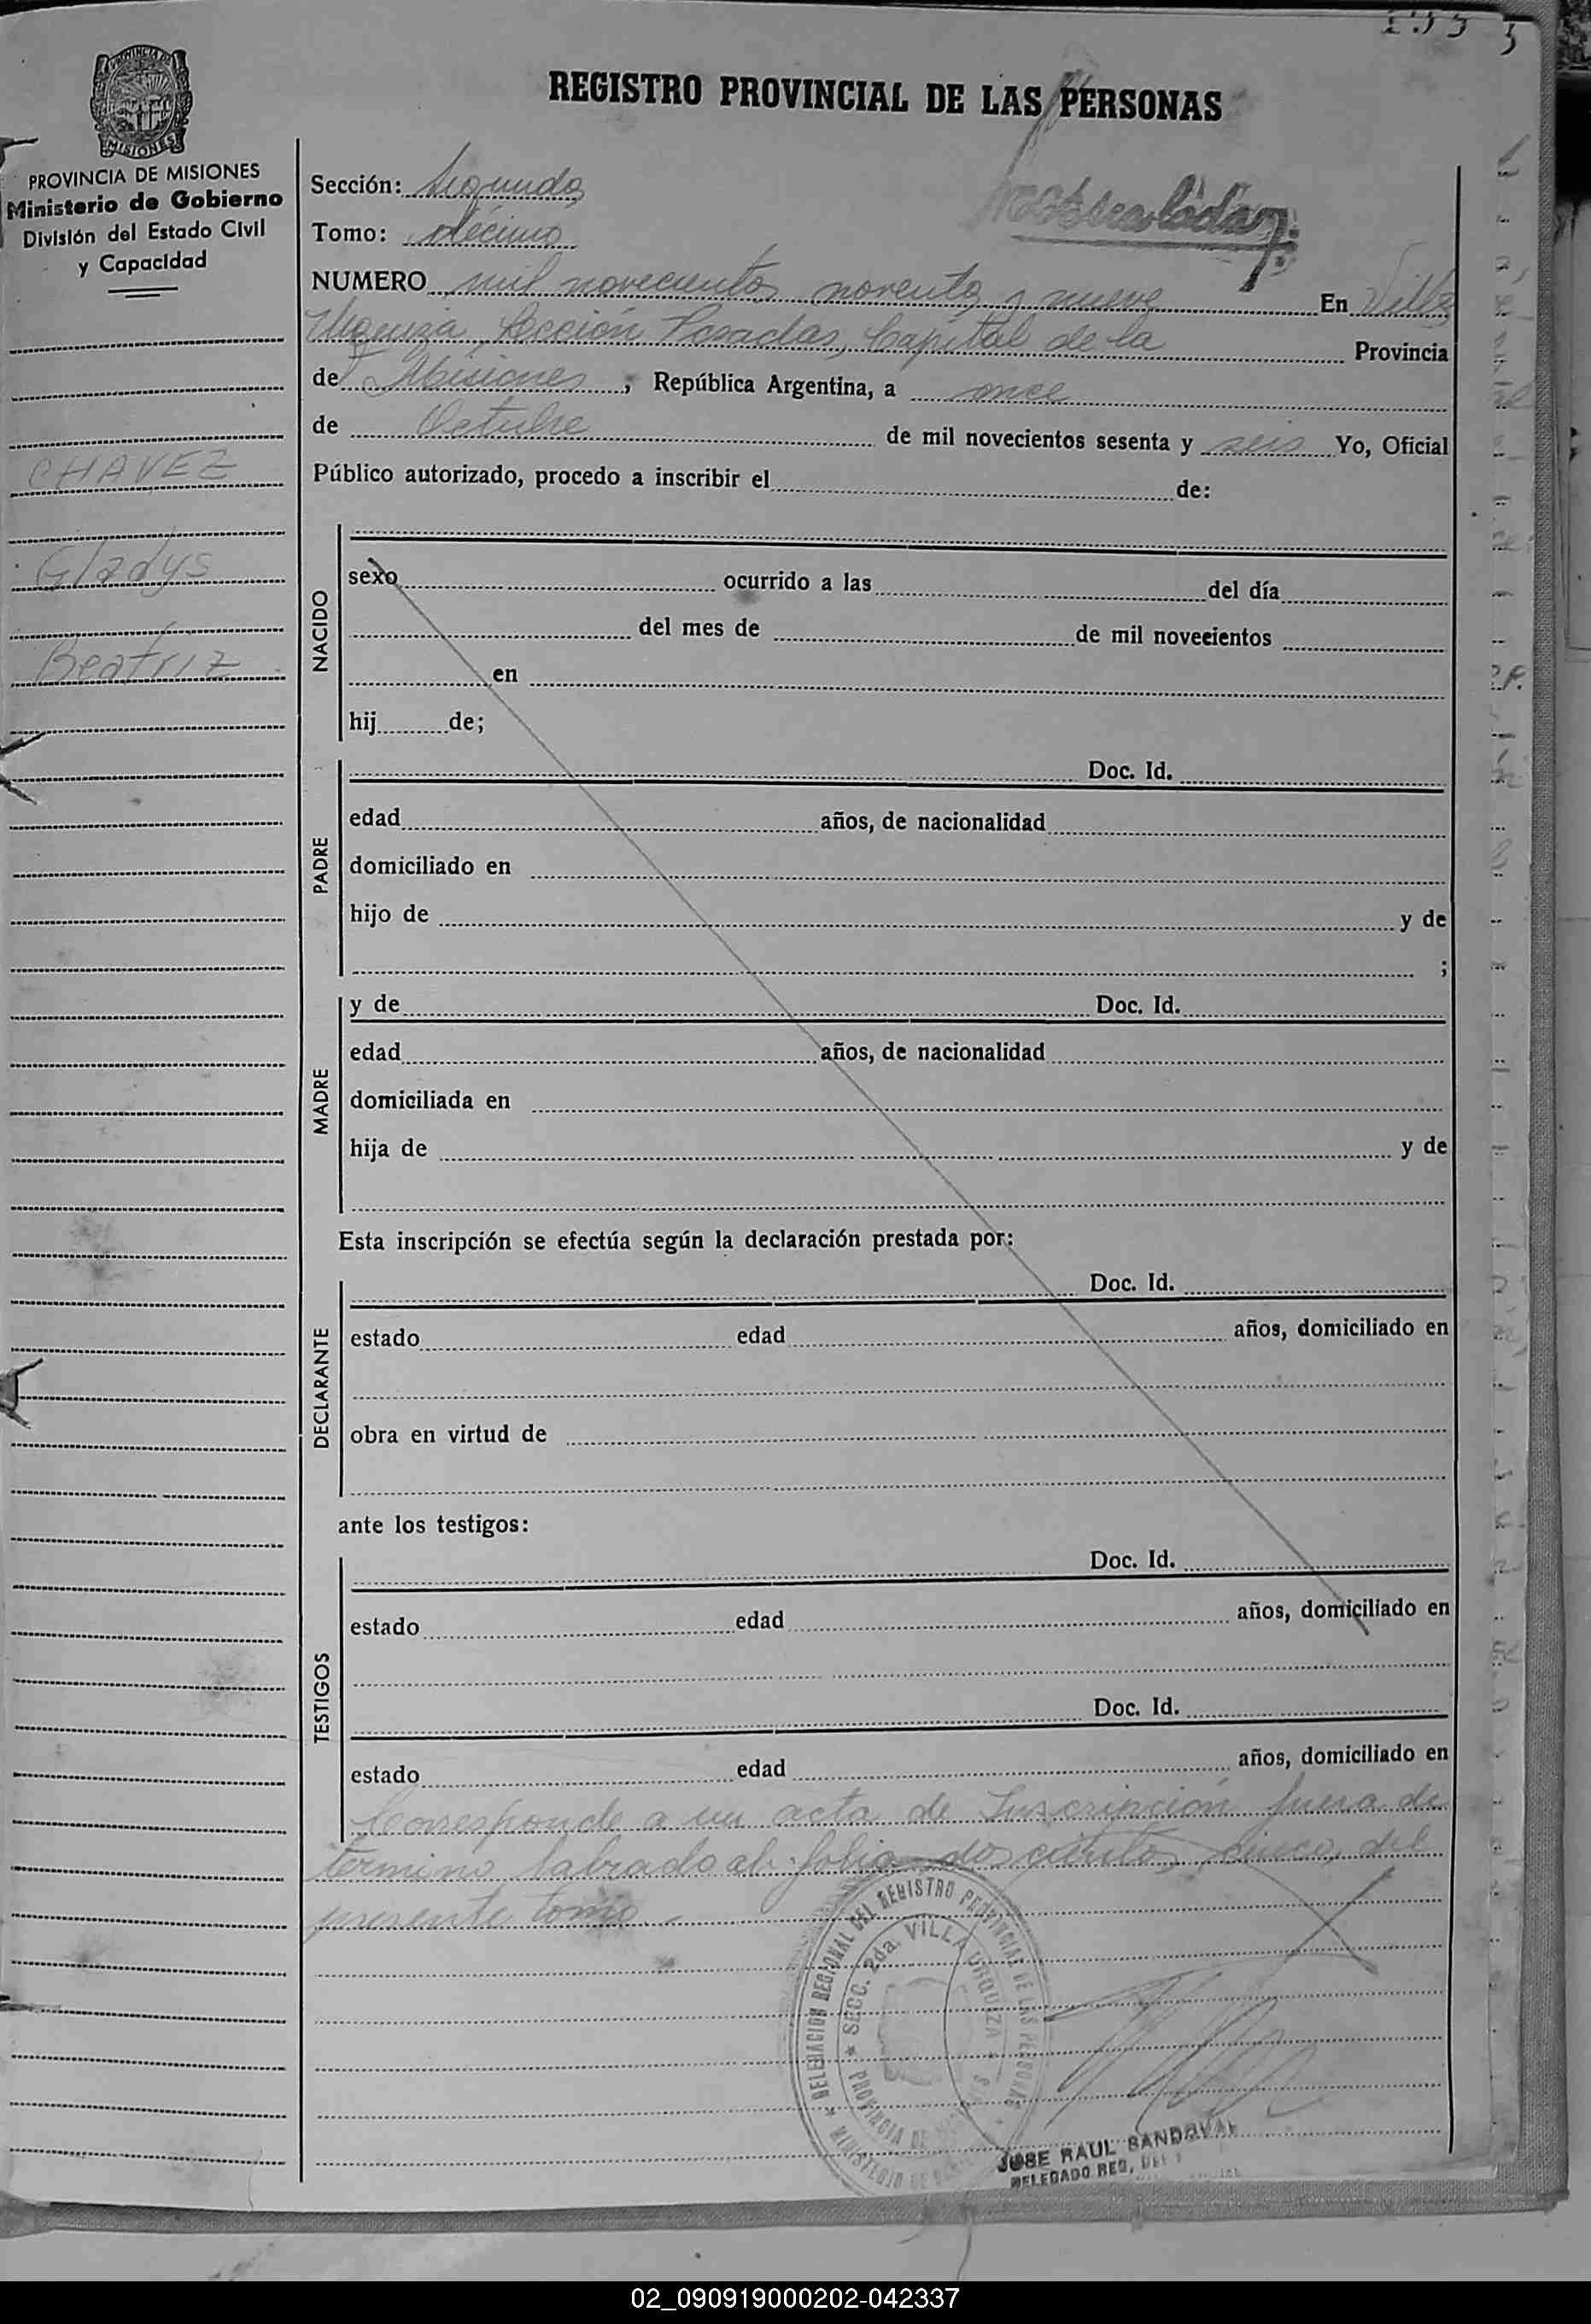 REGISTRO PROVINCIAL DE LAS PERSONAS
PROVINCIA DE MISIONES
Ministerio de Gobierno
División del Estado Civil
y Capacidad
CHAVEZ
Gladys
Beatriz
Sección: Segunda
Tomo: décimo
NUMERO mil novecientos noventa y nueve En Villa
Urquiza, Sección Posadas, Capital de la Provincia
de Misiones, República Argentina, a once
de Octubre de mil novecientos sesenta y seis Yo, Oficial
Público autorizado, procedo a inscribir el de:
NACIDO
sexo ocurrido a las del día
del mes de de mil novecientos
en
hij de;
PADRE
Doc. Id.
edad años, de nacionalidad
domiciliado en
hijo de y de
;
MADRE
y de Doc. Id.
edad años, de nacionalidad
domiciliada en
hija de y de
Esta inscripción se efectúa según la declaración prestada por:
DECLARANTE
Doc. Id.
estado edad años, domiciliado en
obra en virtud de
ante los testigos:
TESTIGOS
Doc. Id.
estado edad años, domiciliado en
Doc. Id.
estado edad años, domiciliado en
Corresponde a un acta de Inscripción fuera de
termino labrado al folio doscientos cinco, del
presente tomo.-
DELEGACION REGIONAL DEL REGISTRO PROVINCIAL DE LAS PERSONAS
SECC. 2da. VILLA URQUIZA
JOSE RAUL SANDOVAL
DELEGADO REG.
02_090919000202-042337